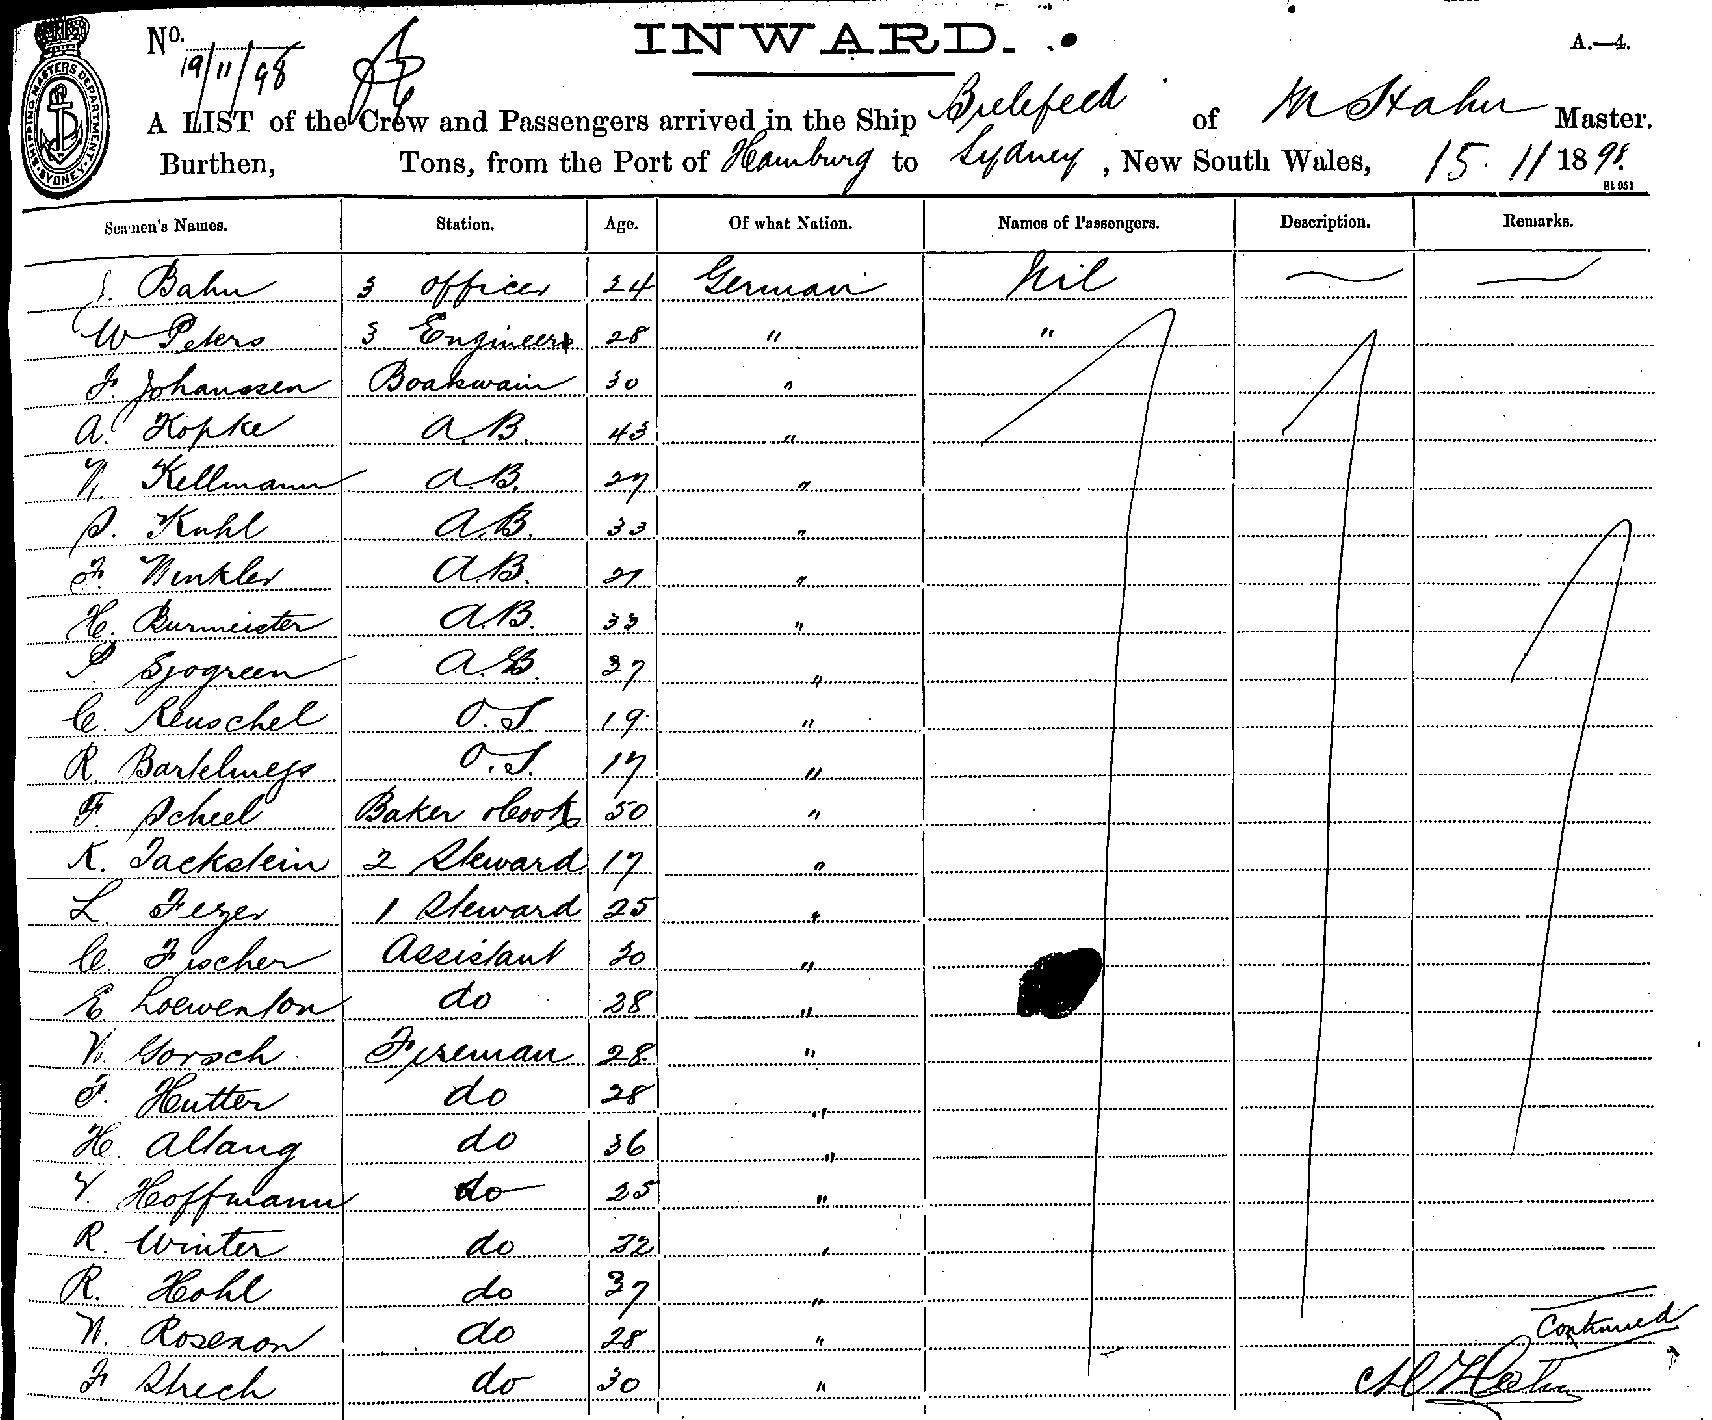 No. 19/11/98
INWARD.
A.—4.
SHIPPING MASTERS DEPARTMENT. SYDNEY.
A LIST of the Crew and Passengers arrived in the Ship Bielefeld of M Hahn Master.
Burthen, Tons, from the Port of Hamburg to Sydney, New South Wales, 15. 11 1898.
Seamen's Names. Station. Age. Of what Nation. Names of Passengers. Description. Remarks.
J. Bahn 3 officer 24 German Nil
W Peters 3 Engineer 28 " "
F. Johanssen Boatswain 30 "
A. Kopke A.B. 43 "
W. Kellmann A.B. 27 "
S. Kuhl A.B. 33 "
F. Winkler A.B. 21 "
H. Burmeister A.B. 33 "
P. Sjogreen A.B. 37 "
C. Reuschel O.S. 19 "
R. O.S. 17 "
F. Scheel Baker & Cook 50 "
K. Tackstein 2 Steward 17 "
L. Fezer 1 Steward 25 "
C. Fischer Assistant 30 "
E Loewenton do 28 "
W. Gorsch Fireman 28 "
F. Hutter do 28 "
H. Altang do 36 "
V. Hoffmann do 25 "
R. Winter do 32 "
R. Hohl do 37 "
W. Rosenon do 28 "
F Strech do 30 "
Continued